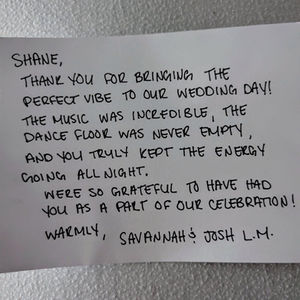 SHANE,
THANK YOU FOR BRINGING THE
PERFECT VIBE TO OUR WEDDING DAY!
THE MUSIC WAS INCREDIBLE, THE
DANCE FLOOR WAS NEVER EMPTY,
AND YOU TRULY KEPT THE ENERGY
GOING ALL NIGHT.
WERE SO GRATEFUL TO HAVE HAD
YOU AS A PART OF OUR CELEBRATION!
WARMLY, SAVANNAH & JOSH L.M.